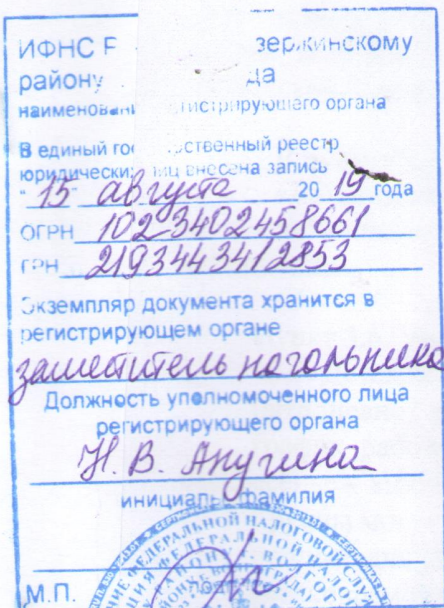 ИФНС зержинскому
району да
наименовани гистрирующего органа
В единый гос рственный реестр
юридических лиц внесена запись
"15" августа 20 19 года
ОГРН 1023402458661
ГРН 2193443412853
Экземпляр документа хранится в
регистрирующем органе
заместитель начальника
Должность уполномоченного лица
регистрирующего органа
Н. В. Апугина
инициалы фамилия
ФЕДЕРАЛЬНОЙ НАЛОГОВОЙ
М.П.